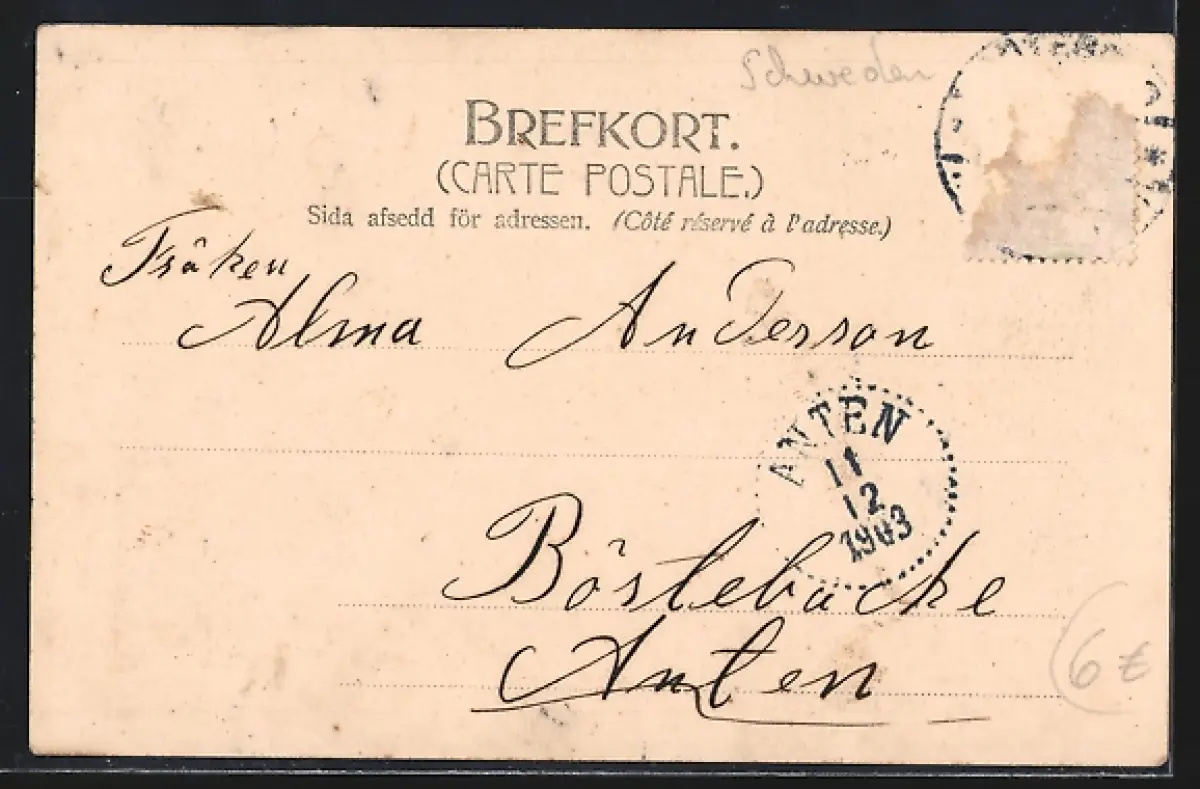 Schweden
BREFKORT.
(CARTE POSTALE.)
Sida afsedd för adressen. (Côté réservé à l'adresse.)
Fröken
Alma Anderson
ANTEN
11
12
1903
Böstebacke
Anten
6 €